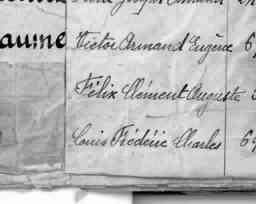 aume Victor Armand Eugène 6
Félix Clément Auguste
Louis Frédéric Charles 6